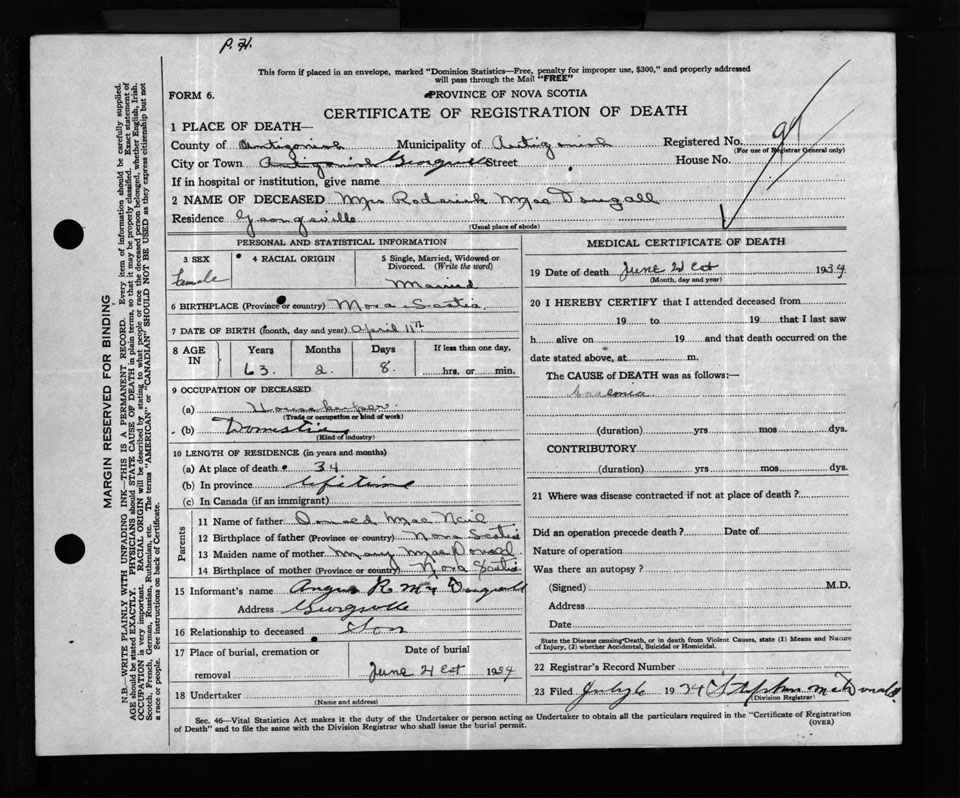 P. H.
This form if placed in an envelope, marked "Dominion Statistics—Free, penalty for improper use, $300," and properly addressed
will pass through the Mail "FREE"
FORM 6.
PROVINCE OF NOVA SCOTIA
CERTIFICATE OF REGISTRATION OF DEATH
1 PLACE OF DEATH—
County of Antigonish Municipality of Antigonish Registered No.
(For use of Registrar General only)
City or Town Antigonish Street House No.
If in hospital or institution, give name
2 NAME OF DECEASED Mrs Roderick Mac Dougall
Residence Georgeville
(Usual place of abode)
PERSONAL AND STATISTICAL INFORMATION
3 SEX
Female
4 RACIAL ORIGIN
5 Single, Married, Widowed or
Divorced. (Write the word)
Married
6 BIRTHPLACE (Province or country) Nova Scotia
7 DATE OF BIRTH (month, day and year) April 11th
8 AGE IN
Years Months Days If less than one day,
63. 2. 8. hrs. or min.
9 OCCUPATION OF DECEASED
(a) Housekeeper
(Trade or occupation or kind of work)
(b) Domestic
(Kind of industry)
10 LENGTH OF RESIDENCE (in years and months)
(a) At place of death 34
(b) In province lifetime
(c) In Canada (if an immigrant)
Parents
11 Name of father Donald Mac Neil
12 Birthplace of father (Province or country) Nova Scotia
13 Maiden name of mother Mary MacDonald
14 Birthplace of mother (Province or country) Nova Scotia
15 Informant's name Angus R. Mc Dougall
Address
16 Relationship to deceased Son
17 Place of burial, cremation or
removal
Date of burial
June 21st 1934
18 Undertaker
(Name and address)
MEDICAL CERTIFICATE OF DEATH
19 Date of death June 21st 1934
(Month, day and year)
20 I HEREBY CERTIFY that I attended deceased from
19 to 19 that I last saw
h alive on 19 and that death occurred on the
date stated above, at m.
The CAUSE of DEATH was as follows:—
Anaemia
(duration) yrs mos dys.
CONTRIBUTORY
(duration) yrs. mos. dys.
21 Where was disease contracted if not at place of death?
Did an operation precede death? Date of
Nature of operation
Was there an autopsy?
(Signed) M.D.
Address
Date
State the Disease causing Death, or in death from Violent Causes, state (1) Means and Nature
of Injury, (2) whether Accidental, Suicidal or Homicidal.
22 Registrar's Record Number
23 Filed July 6 1934 Stephen McDonald
(Division Registrar)
Sec. 46—Vital Statistics Act makes it the duty of the Undertaker or person acting as Undertaker to obtain all the particulars required in the "Certificate of Registration
of Death" and to file the same with the Division Registrar who shall issue the burial permit.
(OVER)
MARGIN RESERVED FOR BINDING
N.B.—WRITE PLAINLY WITH UNFADING INK—THIS IS A PERMANENT RECORD. Every item of information should be carefully supplied.
AGE should be stated EXACTLY. PHYSICIANS should STATE CAUSE OF DEATH in plain terms, so that it may be properly classified. Exact statement of
OCCUPATION is very important. RACIAL ORIGIN will be described by stating to what people or race the deceased person belonged, whether English, Irish,
Scotch, French, German, Russian, Ruthenian, etc. The terms "AMERICAN" or "CANADIAN" SHOULD NOT BE USED as they express citizenship but not
a race or people. See instructions on back of Certificate.